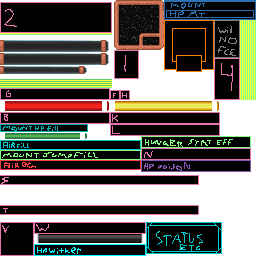 2
MOUNT
HP MT
WIL
NO
FCE
1
4
G
F H
B
K
MOUNT HP FILL
L
AIRFILL
HUNGER STAT EFF
MOUNT JUMP FILL
N
AIR BG
HP POISON
S
T
V
W
HP wither
STATUS
ETC